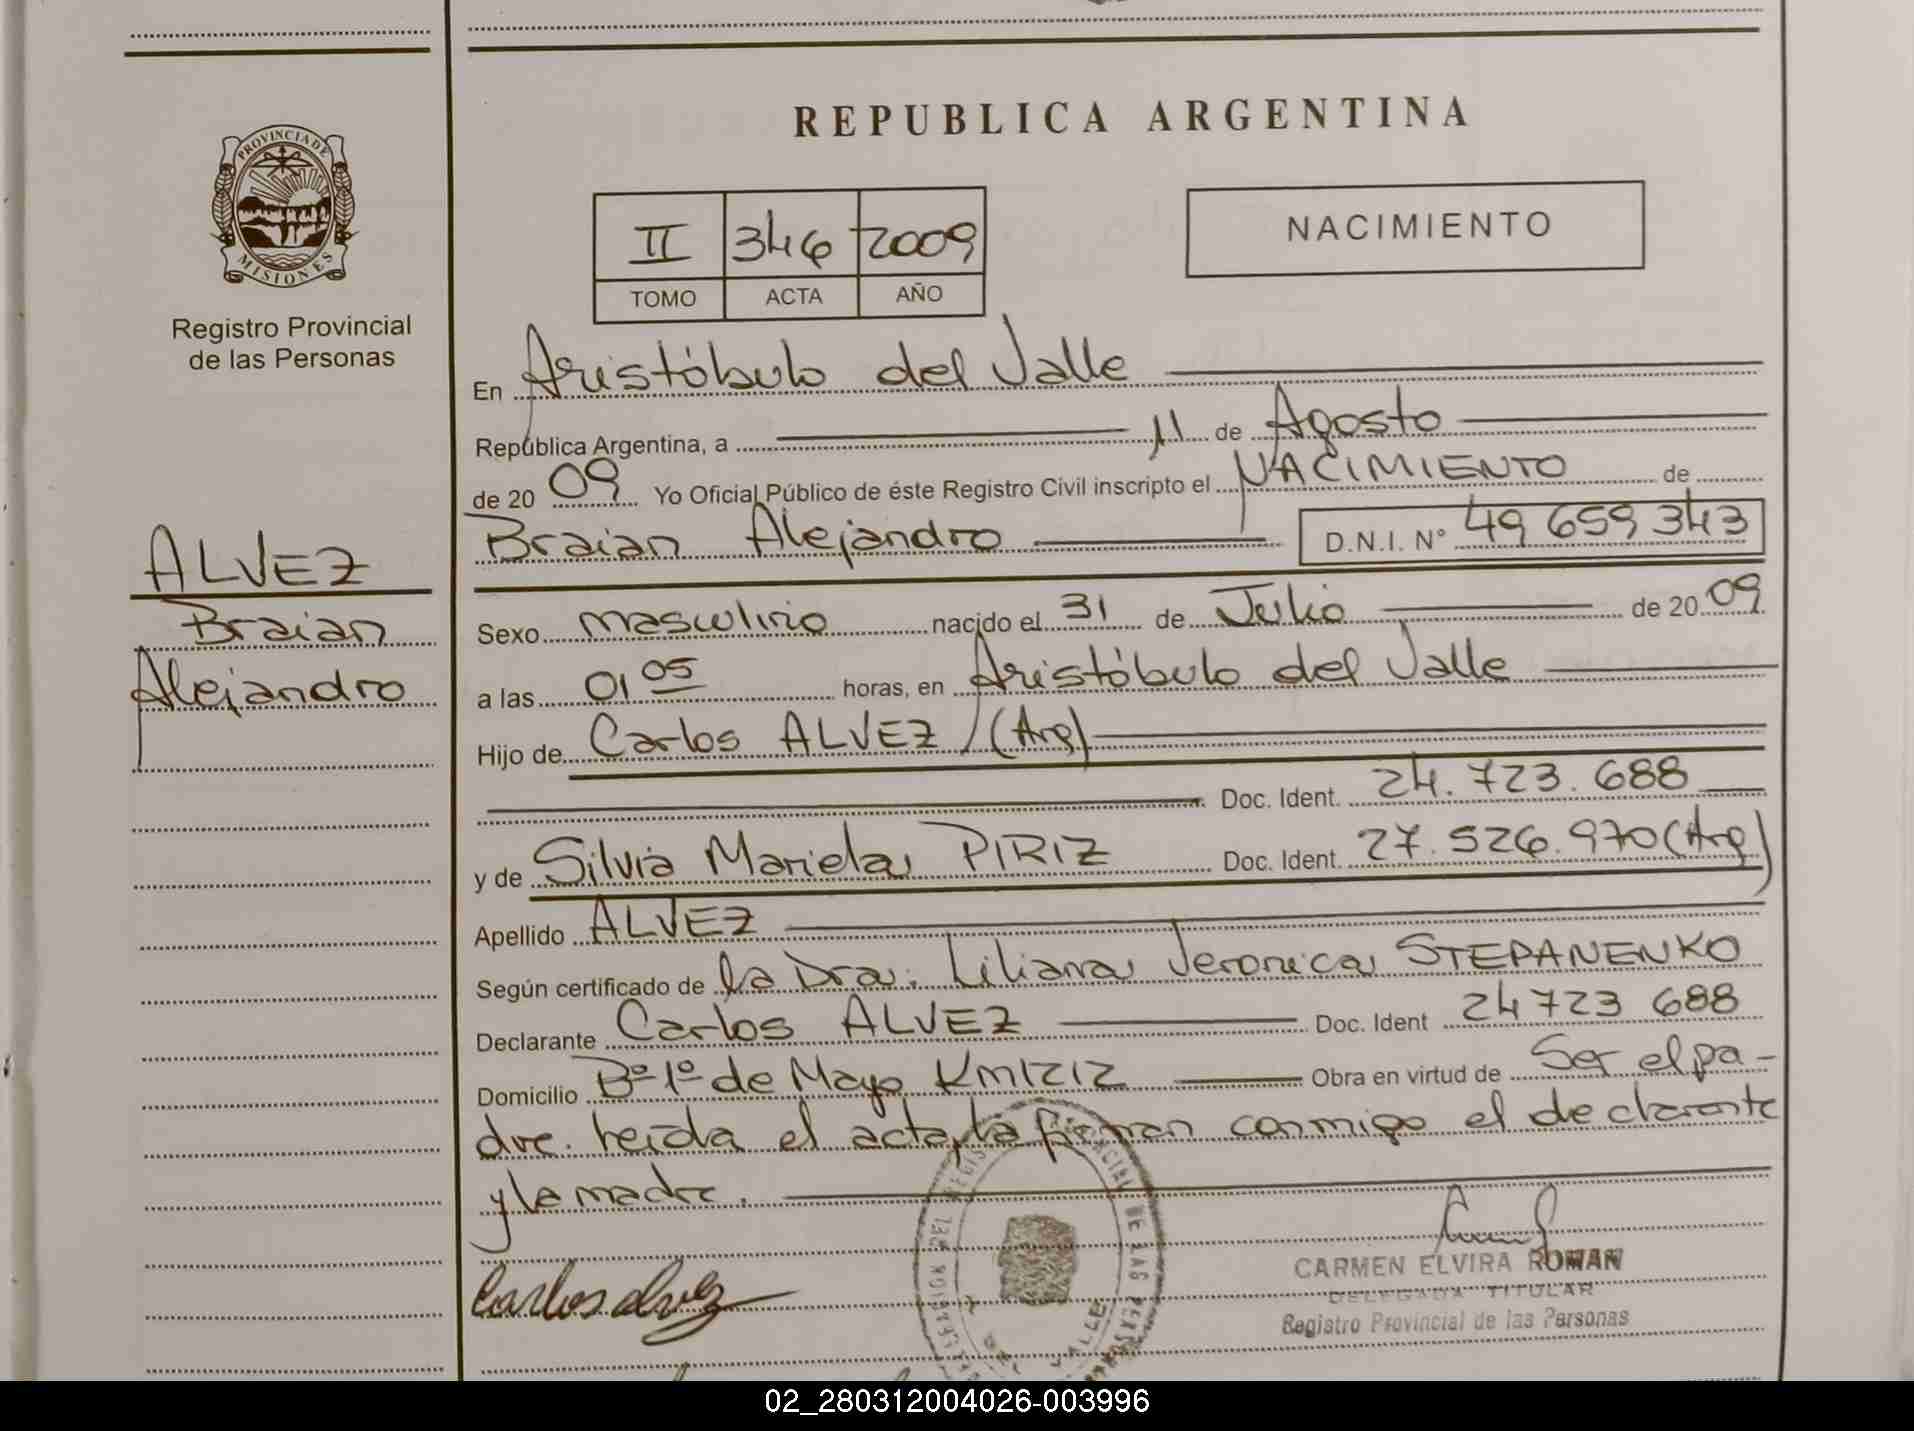 REPUBLICA ARGENTINA
PROVINCIA DE
MISIONES
Registro Provincial
de las Personas
II 346 2009
TOMO ACTA AÑO
NACIMIENTO
ALVEZ
Braian
Alejandro
En Aristóbulo del Valle
República Argentina, a 11 de Agosto
de 20 09 Yo Oficial Público de éste Registro Civil inscripto el NACIMIENTO de
Braian Alejandro D.N.I. N° 49 659 343
Sexo masculino nacido el 31 de Julio de 20 09
a las 01 05 horas, en Aristóbulo del Valle
Hijo de Carlos ALVEZ (Arg)
Doc. Ident. 24.723.688
y de Silvia Mariela PIRIZ Doc. Ident. 27.526.970 (Arg)
Apellido ALVEZ
Según certificado de la Dra. Liliana Veronica STEPANENKO
Declarante Carlos ALVEZ Doc. Ident 24723 688
Domicilio B° 1° de Mayo Km1212 Obra en virtud de Ser el pa-
dre. leída el acta, la firman conmigo el declarante
y la madre.
Carlos Alvez
CARMEN ELVIRA ROMAN
DELEGADA TITULAR
Registro Provincial de las Personas
02_280312004026-003996